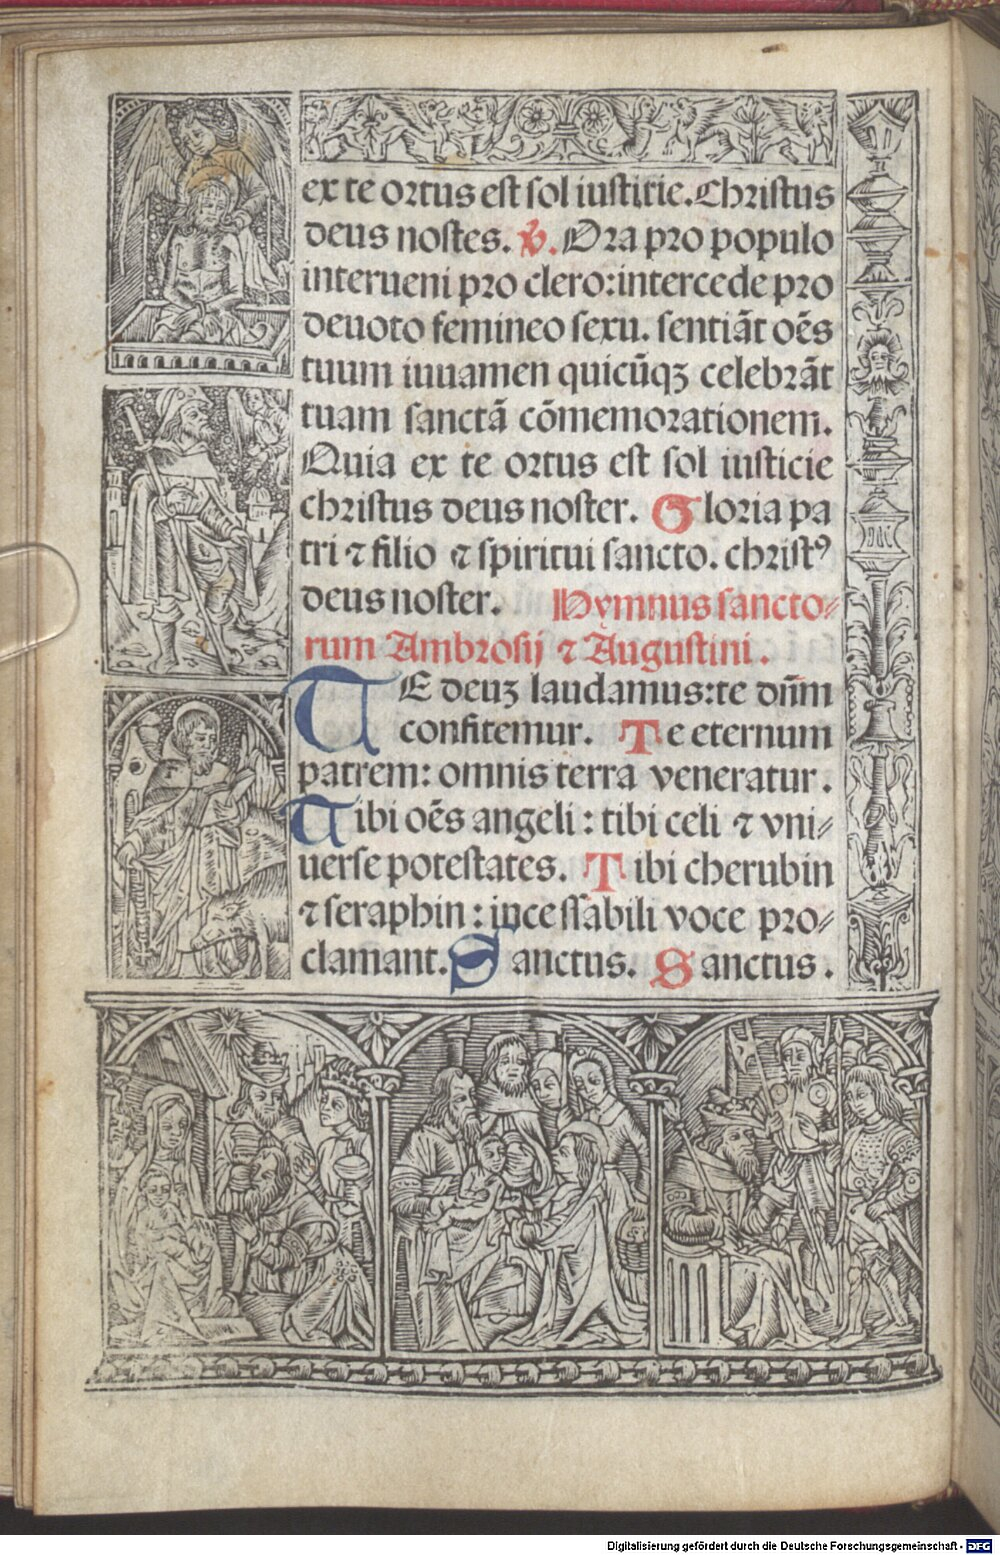 ex te ortus est sol iusticie. Christus
deus nostes. ℣. Ora pro populo
interueni pro clero: intercede pro
deuoto femineo sexu. sentiāt oēs
tuum iuuamen quicūqꝫ celebrāt
tuam sanctā cōmemorationem.
Quia ex te ortus est sol iusticie
christus deus noster. Gloria pa
tri ⁊ filio ⁊ spiritui sancto. christꝰ
deus noster. Hymnus sancto⸗
rum Ambrosij ⁊ Augustini.
TE deuꝫ laudamus: te dn̄m
confitemur. Te eternum
patrem: omnis terra veneratur.
Tibi oēs angeli: tibi celi ⁊ vni⸗
uerse potestates. Tibi cherubin
⁊ seraphin: incessabili voce pro⸗
clamant. Sanctus. Sanctus.
Digitalisierung gefördert durch die Deutsche Forschungsgemeinschaft - DFG